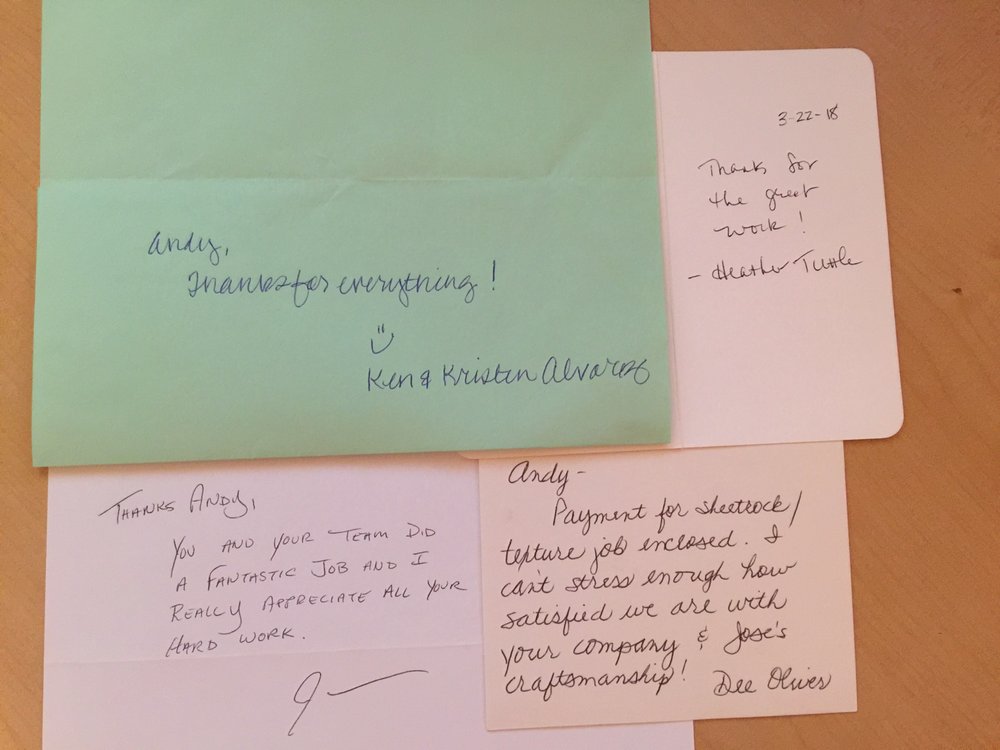 Andy,
Thanks for everything!
Ken & Kristen Alvarez
3-22-18
Thanks for
the great
work!
- Heather Tuttle
Thanks Andy,
You and your team did
a fantastic job and I
really appreciate all your
hard work.
Andy-
Payment for sheetrock/
texture job enclosed. I
can't stress enough how
satisfied we are with
your company & Jose's
craftsmanship!
Dee Oliver